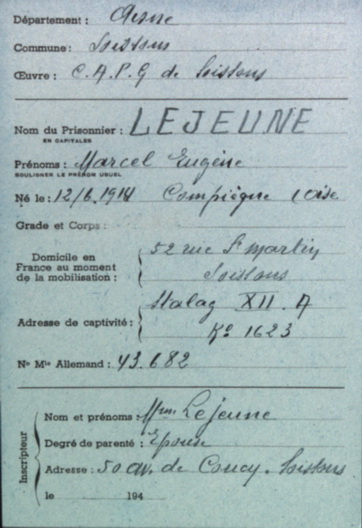 Département : Aisne
Commune : Soissons
Œuvre : C.A.P.G de Soissons
Nom du Prisonnier : LEJEUNE
EN CAPITALES
Prénoms : Marcel Eugène
SOULIGNER LE PRÉNOM USUEL
Né le : 12/6.1914 Compiègne Oise
Grade et Corps :
Domicile en
France au moment
de la mobilisation :
52 rue St martin
Soissons
Adresse de captivité :
Stalag XII.A
Ko 1623
No Mle Allemand : 43.682
Inscripteur
Nom et prénoms : Mme Lejeune
Degré de parenté : épouse
Adresse : 50 av. de Coucy. Soissons
le 194